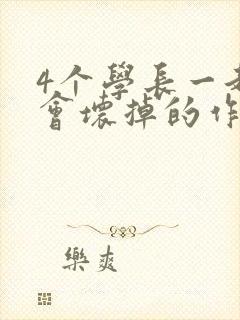 4个學長一
會壞掉的作
樂爽